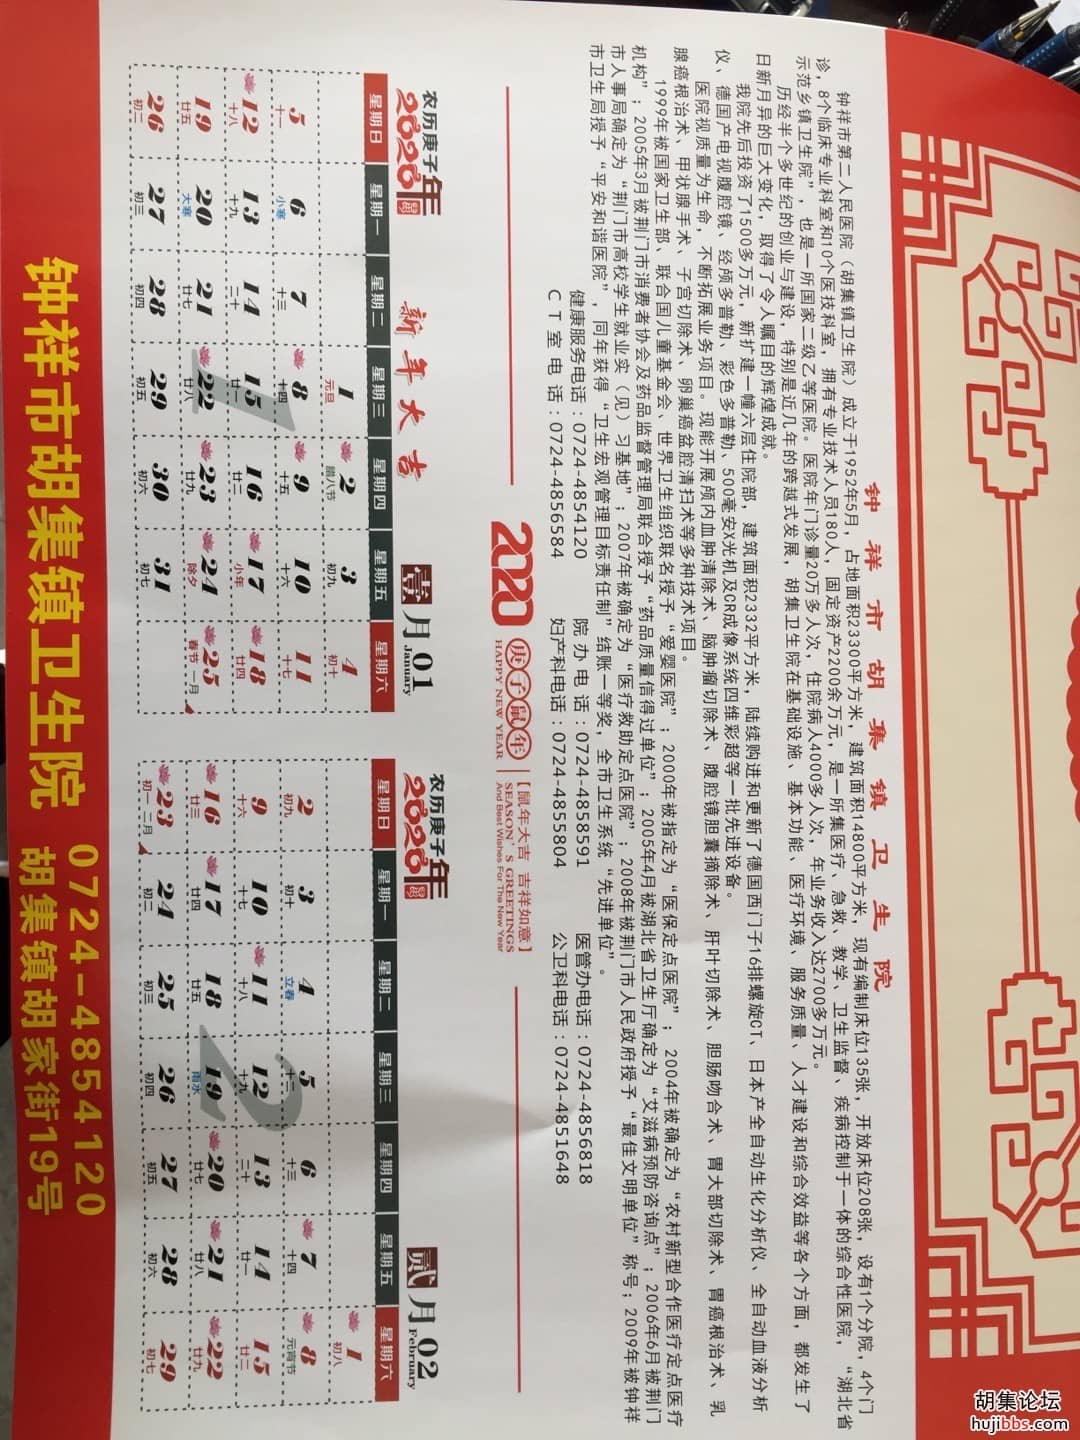 钟祥市胡集镇卫生院
钟祥市第二人民医院（胡集镇卫生院）成立于1952年5月，占地面积23300平方米，建筑面积14800平方米，现有编制床位135张，开放床位208张，设有1个分院，4个门
诊，8个临床专业科室和10个医技科室，拥有专业技术人员180人，固定资产2200余万元，是一所集医疗、急救、教学、卫生监督、疾病控制于一体的综合性医院，“湖北省
示范乡镇卫生院”，也是一所国家二级乙等医院。医院年门诊量20万多人次，住院病人4000多人次，年业务收入达2700多万元。
历经半个多世纪的创业与建设，特别是近几年的跨越式发展，胡集卫生院在基础设施、基本功能、医疗环境、服务质量、人才建设和综合效益等各个方面，都发生了
日新月异的巨大变化，取得了令人瞩目的辉煌成就。
我院先后投资了1500多万元，新扩建一幢六层住院部，建筑面积2332平方米，陆续购进和更新了德国西门子16排螺旋CT、日本产全自动生化分析仪、全自动血液分析
仪、德国产电视腹腔镜、经颅多普勒、彩色多普勒、500毫安X光机及CR成像系统四维彩超等一批先进设备。
医院视质量为生命，不断拓展业务项目。现能开展颅内血肿清除术、脑肿瘤切除术、腹腔镜胆囊摘除术、肝叶切除术、胆肠吻合术、胃大部切除术、胃癌根治术、乳
腺癌根治术、甲状腺手术、子宫切除术、卵巢癌盆腔清扫术等多种技术项目。
1999年被国家卫生部、联合国儿童基金会、世界卫生组织联名授予“爱婴医院”；2000年被指定为“医保定点医院”；2004年被确定为“农村新型合作医疗定点医疗
机构”；2005年3月被荆门市消费者协会及药品监督管理局联合授予“药品质量信得过单位”；2005年4月被湖北省卫生厅确定为“艾滋病预防咨询点”；2006年6月被荆门
市人事局确定为“荆门市高校学生就业实（见）习基地”；2007年被确定为“医疗救助定点医院”；2008年被荆门市人民政府授予“最佳文明单位”称号；2009年被钟祥
市卫生局授予“平安和谐医院”，同年获得“卫生宏观管理目标责任制”结账一等奖，全市卫生系统“先进单位”。
健康服务电话：0724-4854120 院办电话：0724-4858591 医管办电话：0724-4856818
CT室电话：0724-4856584 妇产科电话：0724-4855804 公卫科电话：0724-4851648
2020 庚子鼠年 HAPPY NEW YEAR 【鼠年大吉 吉祥如意】 SEASON'S GREETINGS And Best Wishes For The New Year
农历庚子年 2020 新年大吉 壹月 01 January
星期日 星期一 星期二 星期三 星期四 星期五 星期六
1 2 3 4
元旦 腊八节 初九 初十
5 6 7 8 9 10 11
十一 小寒 十三 十四 十五 十六 十七
12 13 14 15 16 17 18
十八 十九 二十 廿一 廿二 小年 廿四
19 20 21 22 23 24 25
廿五 大寒 廿七 廿八 廿九 除夕 春节 一月
26 27 28 29 30 31
初二 初三 初四 初五 初六 初七
1
农历庚子年 2020 贰月 02 February
星期日 星期一 星期二 星期三 星期四 星期五 星期六
1
初八
2 3 4 5 6 7 8
初九 初十 立春 十二 十三 十四 元宵节
9 10 11 12 13 14 15
十六 十七 十八 十九 二十 廿一 廿二
16 17 18 19 20 21 22
廿三 廿四 廿五 雨水 廿七 廿八 廿九
23 24 25 26 27 28 29
初一 二月 初二 初三 初四 初五 初六 初七
2
钟祥市胡集镇卫生院 0724-4854120
胡集镇胡家街19号
胡集论坛
hujibbs.com